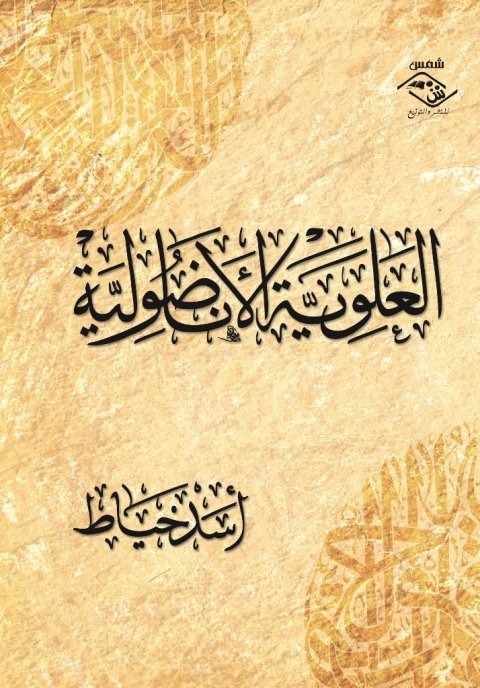 شمس
للنشر والتوزيع
العلوية الأناضولية
أسد خياط